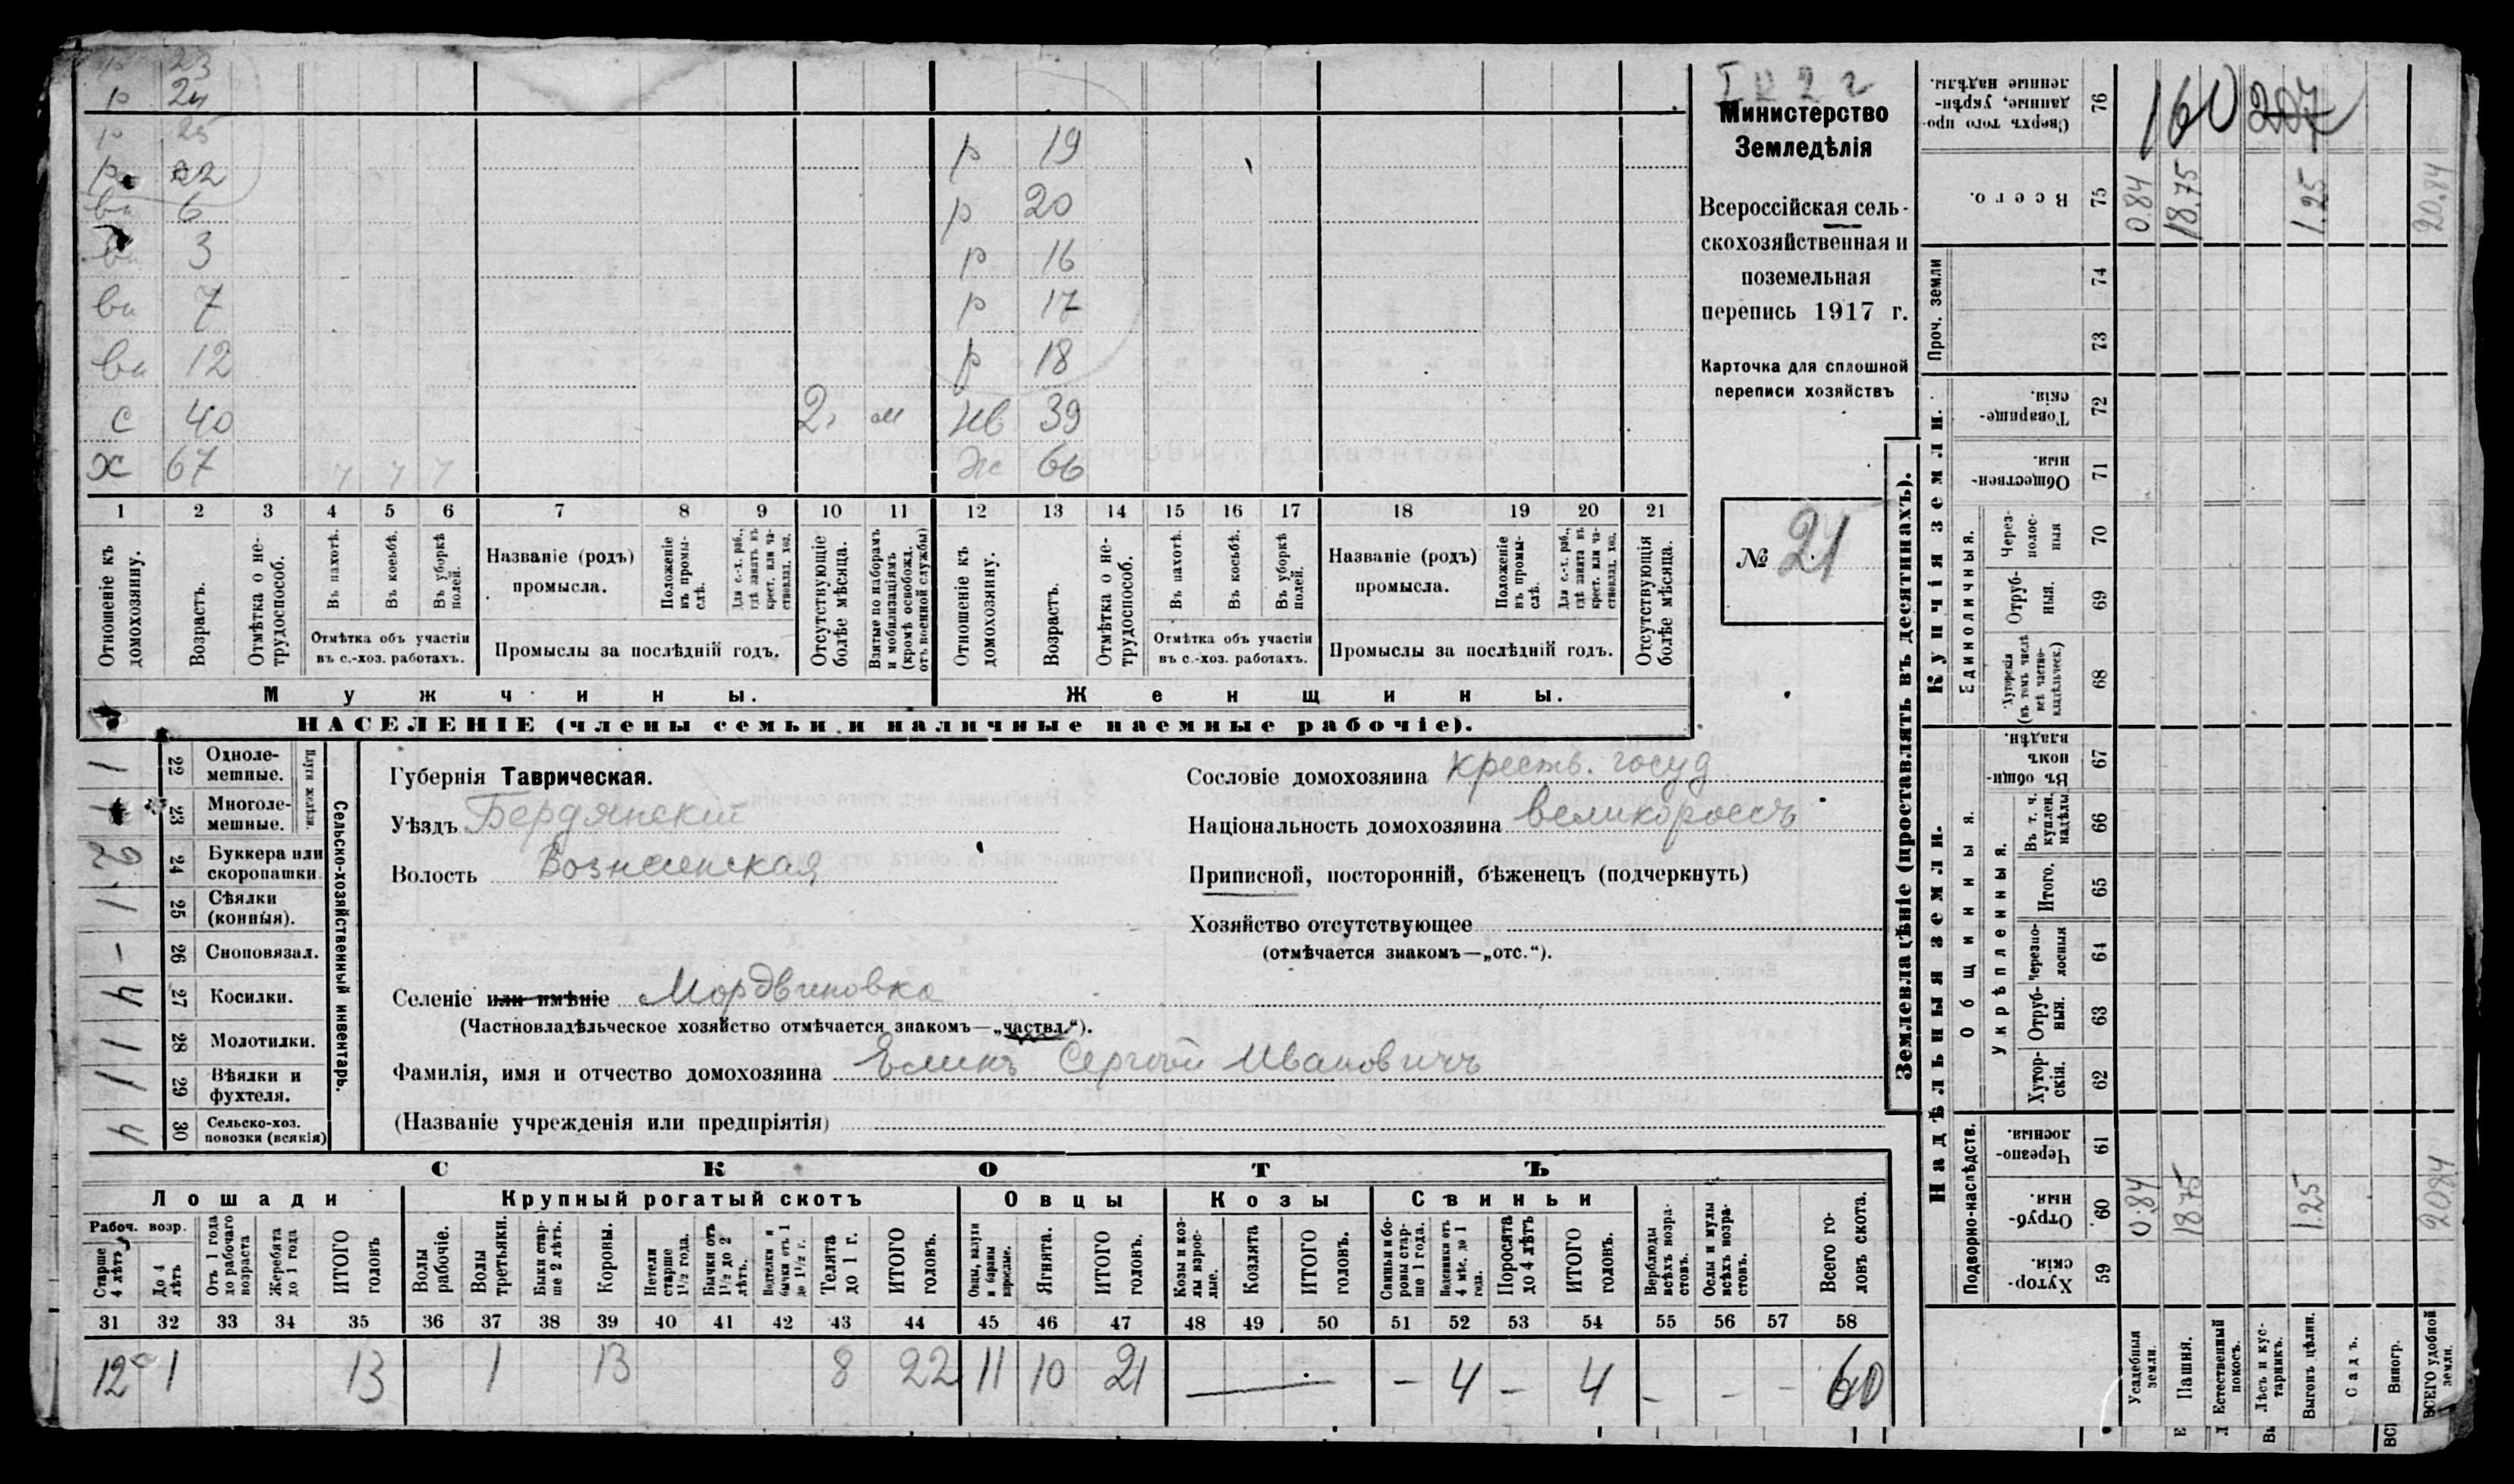 р 23
р 24
р 25 р 19
р 22 р 20
вн 6 р 16
3
вн 7 р 17
вн 12 р 18
с 40 2 м нв 39
х 67 ж 66
1 2 3 4 5 6 7 8 9 10 11 12 13 14 15 16 17 18 19 20 21
Отношеніе къ домохозяину.
Возрастъ.
Отмѣтка о не-трудоспособ.
Въ пахотѣ.
Въ косьбѣ.
Въ уборкѣ полей.
Отмѣтка объ участіи въ с.-хоз. работахъ.
Названіе (родъ) промысла.
Положеніе въ промы-слѣ.
Для с.-х. раб., гдѣ занятъ въ крест. или ча-стновлад. хоз.
Промыслы за послѣдній годъ.
Отсутствующіе болѣе мѣсяца.
Взятые по наборамъ и мобилизаціямъ (кромѣ освобожд. отъ военной службы)
Отношеніе къ домохозяину.
Возрастъ.
Отмѣтка о не-трудоспособ.
Въ пахотѣ.
Въ косьбѣ.
Въ уборкѣ полей.
Отмѣтка объ участіи въ с.-хоз. работахъ.
Названіе (родъ) промысла.
Положеніе въ промы-слѣ.
Для с.-х. раб., гдѣ занята въ крест. или ча-стновлад. хоз.
Промыслы за послѣдній годъ.
Отсутствующія болѣе мѣсяца.
Мужчины. Женщины.
НАСЕЛЕНІЕ (члены семьи и наличные наемные рабочіе).
Министерство
Земледѣлія
Всероссійская сель-
скохозяйственная и
поземельная
перепись 1917 г.
Карточка для сплошной
переписи хозяйствъ
№ 21
Сельско-хозяйственный инвентарь.
Плуги желѣзн.
1 22 Одноле-мешные.
1 23 Многоле-мешные.
2 24 Буккера или скоропашки.
1 25 Сѣялки (конныя).
- 26 Сноповязал.
4 27 Косилки.
1 28 Молотилки.
1 29 Вѣялки и фухтеля.
4 30 Сельско-хоз. повозки (всякія)
Губернія Таврическая.
Уѣздъ Бердянскій
Волость Вознесенская
Селеніе или имѣніе Мордвиновка
(Частновладѣльческое хозяйство отмѣчается знакомъ—„частвл.“).
Фамилія, имя и отчество домохозяина Елинъ Сергѣй Ивановичъ
(Названіе учрежденія или предпріятія)
Сословіе домохозяина крестъ. госуд
Національность домохозяина великороссъ
Приписной, посторонній, бѣженецъ (подчеркнуть)
Хозяйство отсутствующее
(отмѣчается знакомъ—„отс.“).
СКОТЪ
Лошади Крупный рогатый скотъ Овцы Козы Свиньи
Рабоч. возр.
Старше 4 лѣтъ
До 4 лѣтъ
Отъ 1 года до рабочаго возраста
Жеребята до 1 года
ИТОГО головъ
Волы рабочіе.
Волы третьяки.
Быки стар-ше 2 лѣтъ.
Коровы.
Нетели старше 1½ года.
Бычки отъ 1½ до 2 лѣтъ.
Подтелки и бычки отъ 1 до 1½ г.
Телята до 1 г.
ИТОГО головъ.
Овцы, валухи и бараны взрослые.
Ягнята.
ИТОГО головъ.
Козы и коз-лы взрос-лые.
Козлята
ИТОГО головъ.
Свиньи и бо-ровы стар-ше 1 года.
Подсвинки отъ 4 мѣс. до 1 года.
Поросята до 4 лѣтъ
ИТОГО головъ.
Верблюды всѣхъ возра-стовъ.
Ослы и мулы всѣхъ возра-стовъ.
Всего го-ловъ скота.
31 32 33 34 35 36 37 38 39 40 41 42 43 44 45 46 47 48 49 50 51 52 53 54 55 56 57 58
12 1 13 1 13 8 22 11 10 21 — - 4 - 4 - - - 60
Землевладѣніе (проставлять въ десятинахъ).
Надѣльныя земли. Купчія земли. Проч. земли
Подворно-наслѣдств. Общинныя. Укрѣпленныя. Единоличныя.
Хутор-скія. 59
Отруб-ныя. 60
Черезпо-лосныя. 61
Хутор-скія. 62
Отруб-ныя. 63
Черезпо-лосныя 64
Итого. 65
Въ т. ч. куплен. надѣлы 66
Въ общи-номъ владѣн. 67
Хуторскія (въ томъ числѣ всѣ частно-владѣльческ.) 68
Отруб-ныя. 69
Через-полос-ныя 70
Обществен-ныя. 71
Товарище-скія. 72
73
74
Всего. 75
Сверхъ того про-данные, укрѣп-ленные надѣлы. 76
Усадебныя земли. 0.84 0.84
Пашня. 18.75 18.75
Естественный покосъ.
Лѣсъ и кус-тарникъ.
Выгонъ цѣлин. 1.25 1.25
Садъ.
Виногр.
ВСЕГО удобной земли. 20.84 20.84
160 207